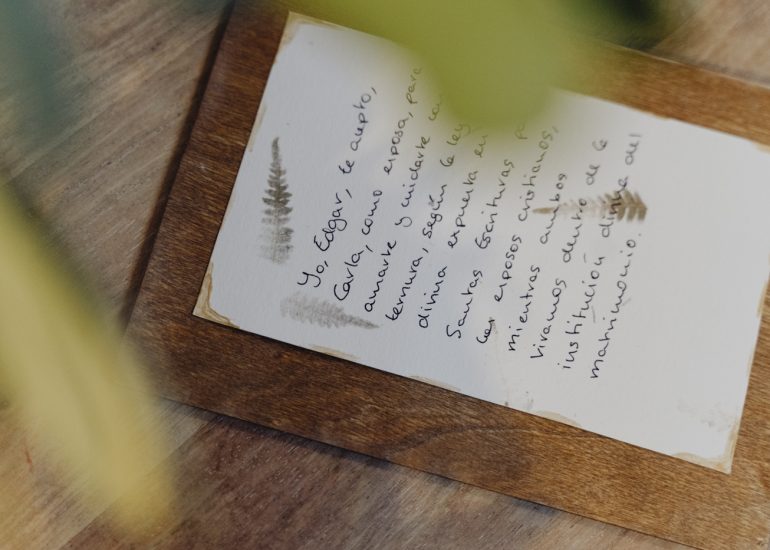 Yo, Edgar, te acepto,
Carla, como esposa, para
amarte y cuidarte con
ternura, según la ley
divina expuesta en
Santas Escrituras
los esposos cristianos,
mientras ambos
vivamos dentro de la
institución divina del
matrimonio.